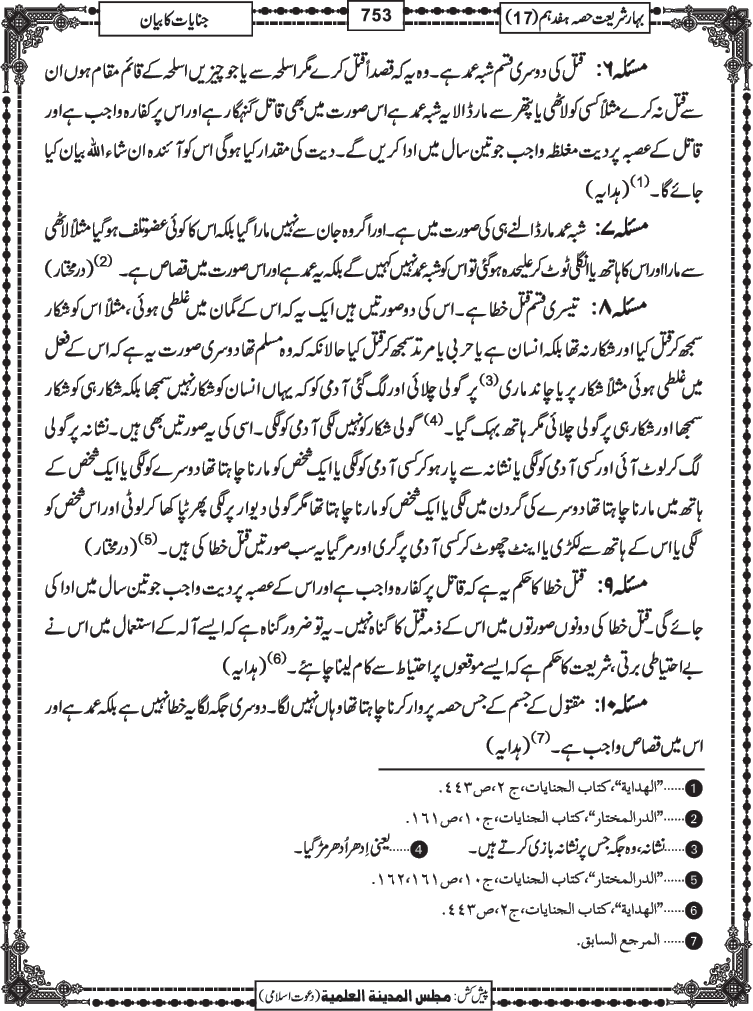 بہارِ شریعت حصہ ہفدہم (17)
753
جنایات کا بیان
مسئلہ ۶: قتل کی دوسری قسم شبہ عمد ہے۔ وہ یہ کہ قصداً قتل کرے مگر اسلحہ سے یا جو چیزیں اسلحہ کے قائم مقام ہوں ان
سے قتل نہ کرے مثلاً کسی کو لاٹھی یا پتھر سے مار ڈالا یہ شبہ عمد ہے اس صورت میں بھی قاتل گنہگار ہے اور اس پر کفارہ واجب ہے اور
قاتل کے عصبہ پر دیت مغلظہ واجب جو تین سال میں ادا کریں گے۔ دیت کی مقدار کیا ہوگی اس کو آئندہ ان شاء اللہ بیان کیا
جائے گا۔(1) (ہدایہ)
مسئلہ ۷: شبہ عمد مار ڈالنے ہی کی صورت میں ہے۔ اور اگر وہ جان سے نہیں مارا گیا بلکہ اس کا کوئی عضو تلف ہوگیا مثلاً لاٹھی
سے مارا اور اس کا ہاتھ یا انگلی ٹوٹ کر علیحدہ ہوگئی تو اس کو شبہ عمد نہیں کہیں گے بلکہ یہ عمد ہے اور اس صورت میں قصاص ہے۔ (2) (درمختار)
مسئلہ ۸: تیسری قسم قتل خطا ہے۔ اس کی دو صورتیں ہیں ایک یہ کہ اس کے گمان میں غلطی ہوئی، مثلاً اس کو شکار
سمجھ کر قتل کیا اور شکار نہ تھا بلکہ انسان ہے یا حربی یا مرتد سمجھ کر قتل کیا حالانکہ کہ وہ مسلم تھا دوسری صورت یہ ہے کہ اس کے فعل
میں غلطی ہوئی مثلاً شکار پر یا چاند ماری(3) پر گولی چلائی اور لگ گئی آدمی کو کہ یہاں انسان کو شکار نہیں سمجھا بلکہ شکار ہی کو شکار
سمجھا اور شکار ہی پر گولی چلائی مگر ہاتھ بہک گیا۔(4) گولی شکار کو نہیں لگی آدمی کو لگی۔ اسی کی یہ صورتیں بھی ہیں۔ نشانہ پر گولی
لگ کر لوٹ آئی اور کسی آدمی کو لگی یا نشانہ سے پار ہوکر کسی آدمی کو لگی یا ایک شخص کو مارنا چاہتا تھا دوسرے کو لگی یا ایک شخص کے
ہاتھ میں مارنا چاہتا تھا دوسرے کی گردن میں لگی یا ایک شخص کو مارنا چاہتا تھا مگر گولی دیوار پر لگی پھر ٹپا کھا کر لوٹی اور اس شخص کو
لگی یا اس کے ہاتھ سے لکڑی یا اینٹ چھوٹ کر کسی آدمی پر گری اور مر گیا یہ سب صورتیں قتل خطا کی ہیں۔(5) (درمختار)
مسئلہ ۹: قتل خطا کا حکم یہ ہے کہ قاتل پر کفارہ واجب ہے اور اس کے عصبہ پر دیت واجب جو تین سال میں ادا کی
جائے گی۔ قتل خطا کی دونوں صورتوں میں اس کے ذمہ قتل کا گناہ نہیں۔ یہ تو ضرور گناہ ہے کہ ایسے آلہ کے استعمال میں اس نے
بے احتیاطی برتی، شریعت کا حکم ہے کہ ایسے موقعوں پر احتیاط سے کام لینا چاہئے۔(6) (ہدایہ)
مسئلہ ۱۰: مقتول کے جسم کے جس حصہ پر وار کرنا چاہتا تھا وہاں نہیں لگا۔ دوسری جگہ لگا یہ خطا نہیں ہے بلکہ عمد ہے اور
اس میں قصاص واجب ہے۔(7) (ہدایہ)
1 ......"الهداية"، كتاب الجنايات، ج ٢، ص ٤٤٣.
2 ......"الدرالمختار"، كتاب الجنايات، ج ١٠، ص ١٦١.
3 ......نشانہ، وہ جگہ جس پر نشانہ بازی کرتے ہیں۔ 4 ......یعنی اِدھر اُدھر مڑ گیا۔
5 ......"الدرالمختار"، كتاب الجنايات، ج ١٠، ص ١٦١، ١٦٢.
6 ......"الهداية"، كتاب الجنايات، ج٢، ص ٤٤٣.
7 ...... المرجع السابق.
پیش کش: مجلس المدينة العلمية (دعوت اسلامی)